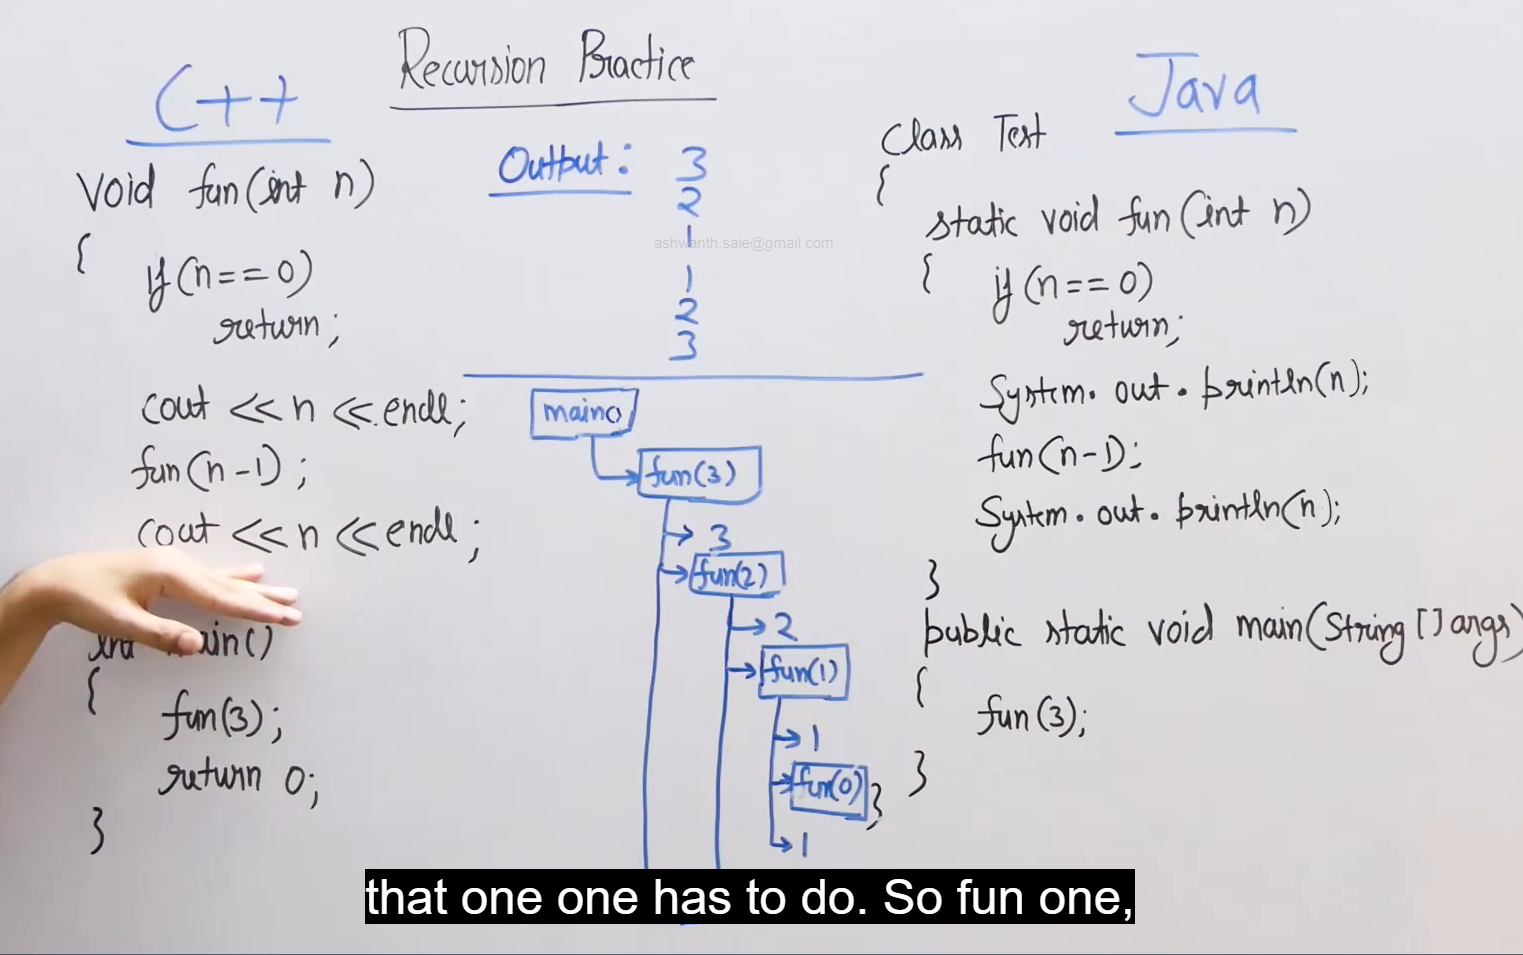 Recursion Practice
C++
void fun(int n)
{
if(n==0)
return;
cout <<n <<endl;
fun(n-1);
cout <<n <<endl;
int main()
{
fun(3);
return 0;
}
Output: 3
2
1
1
2
3
ashwanth.saie@gmail.com
main()
fun(3)
3
fun(2)
2
fun(1)
1
fun(0)
1
Java
Class Test
{
static void fun(int n)
{ if(n==0)
return;
System.out.println(n);
fun(n-1);
System.out.println(n);
}
public static void main(String []args)
{
fun(3);
}
}
that one one has to do. So fun one,